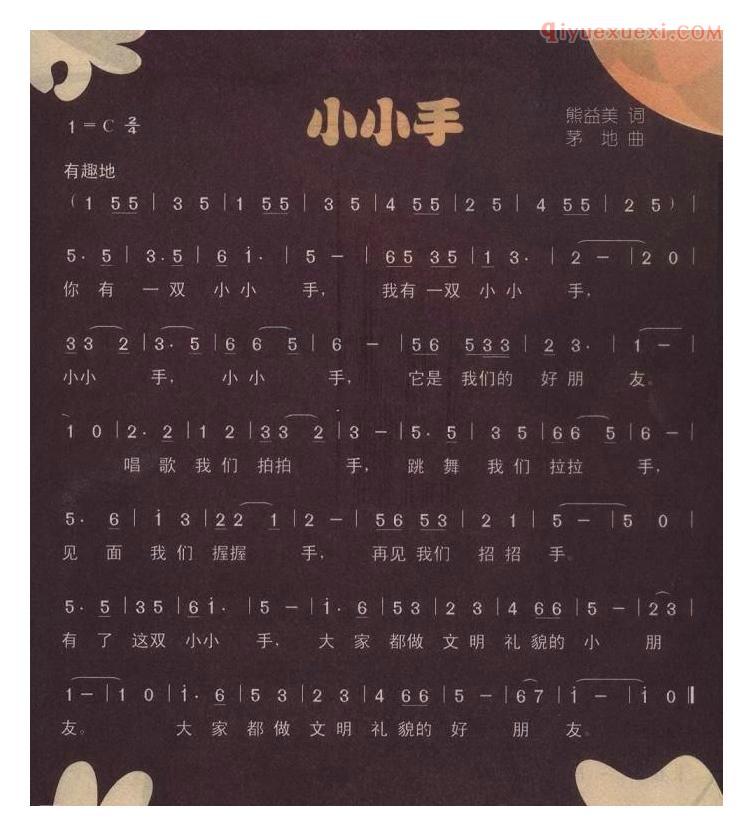 qiyuexuexi.COM
小小手
熊益美 词
茅 地 曲
1=C 2/4
有趣地
(1 55 | 3 5 | 1 55 | 3 5 | 4 55 | 2 5 | 4 55 | 2 5) |
5. 5 | 3. 5 | 6 i. | 5 — | 65 35 | 1 3. | 2 — | 2 0 |
你 有 一 双 小 小 手, 我有 一双 小 小 手,
33 2 | 3. 5 | 6 6 5 | 6 — | 56 533 | 2 3. | 1 — |
小小 手, 小 小 手, 它是 我们的 好 朋 友。
1 0 | 2. 2 | 1 2 | 33 2 | 3 — | 5. 5 | 3 5 | 66 5 | 6 — |
唱 歌 我 们 拍拍 手, 跳 舞 我 们 拉拉 手,
5. 6 | i 3 | 22 1 | 2 — | 56 53 | 2 1 | 5 — | 5 0 |
见 面 我 们 握握 手, 再见 我们 招 招 手。
5. 5 | 35 | 6i. | 5 — | i. 6 | 53 | 2 3 | 4 66 | 5 — | 23 |
有 了 这双 小小 手, 大 家 都做 文 明 礼 貌的 小 朋
1— | 1 0 | i. 6 | 5 3 | 2 3 | 4 66 | 5 — | 67 | i — | i 0 ‖
友。 大 家 都 做 文 明 礼 貌的 好 朋 友。